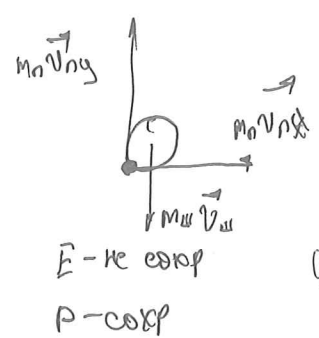 mₙv⃗ₙy
mₙv⃗ₙx
mшv⃗ш
E - не сохр
P - сохр